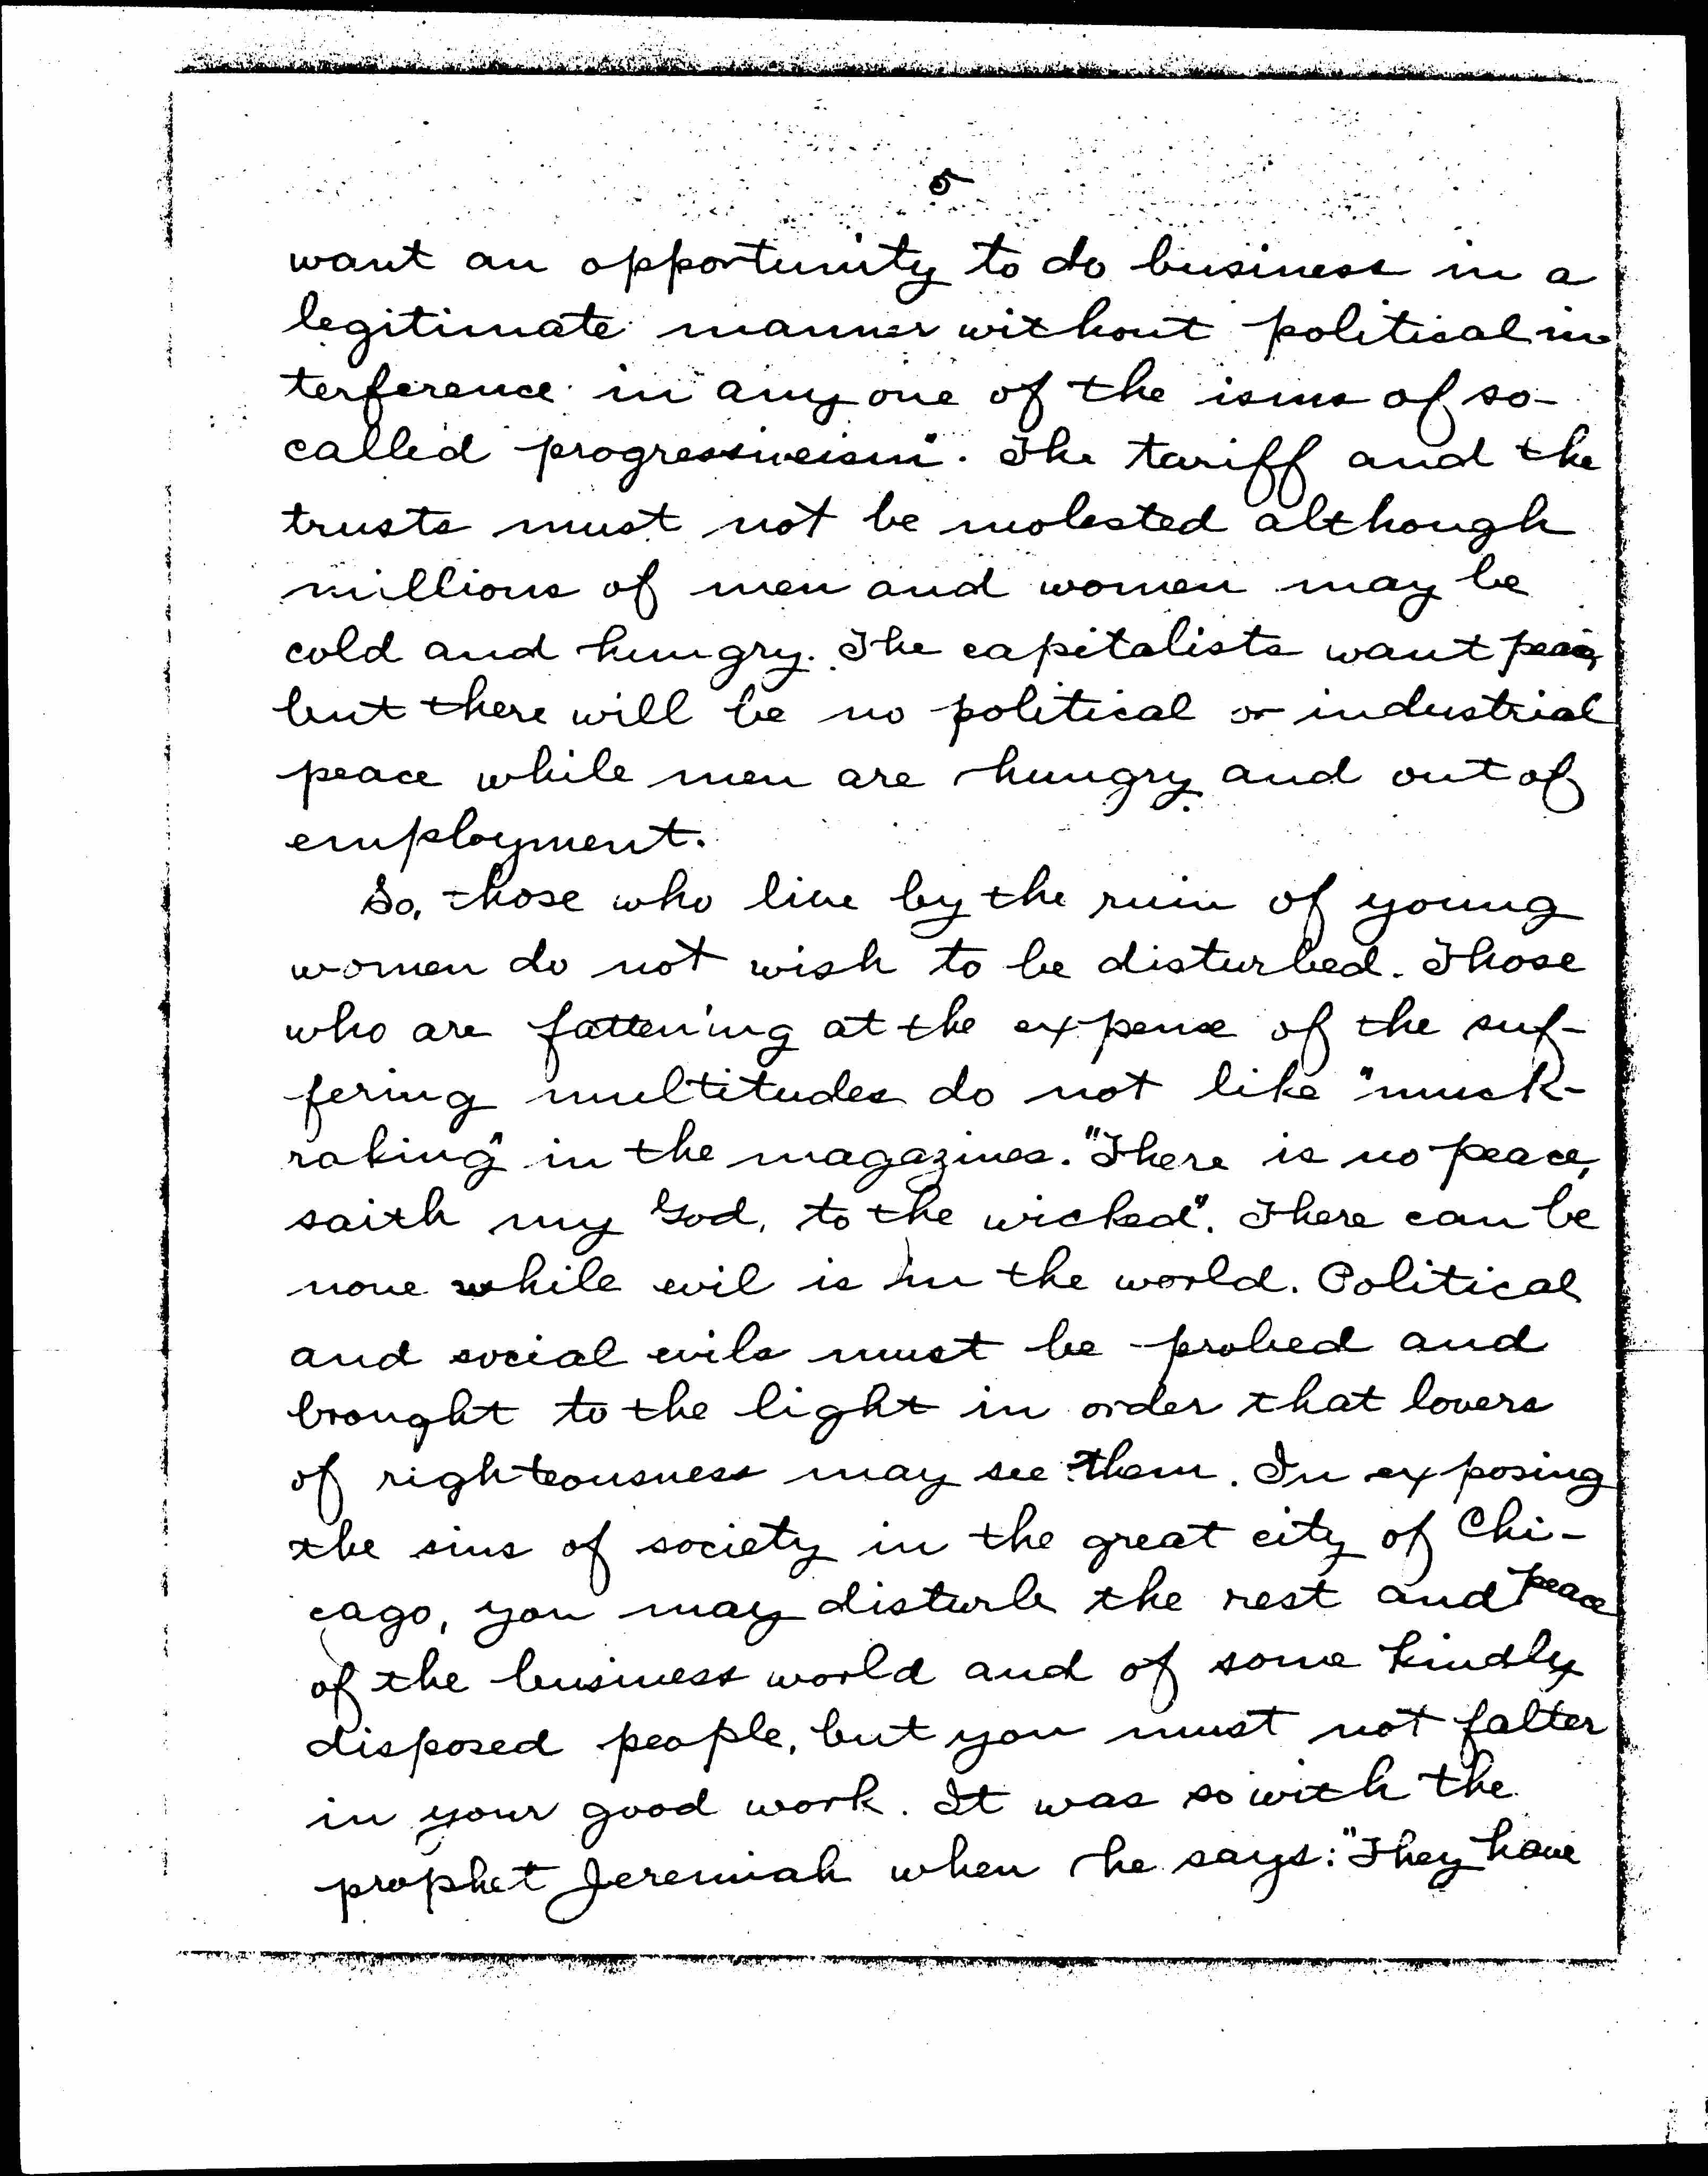 5
want an opportunity to do business in a
legitimate manner without political in-
terference in any one of the isms of so-
called progressiveism". The tariff and the
trusts must not be molested although
millions of men and women may be
cold and hungry. The capitalists want peace,
but there will be no political or industrial
peace while men are hungry and out of
employment.
So, those who live by the ruin of young
women do not wish to be disturbed. Those
who are fattening at the expense of the suf-
fering multitudes do not like "muck-
raking" in the magazines. "There is no peace,
saith my God, to the wicked". There can be
none while evil is in the world. Political
and social evils must be probed and
brought to the light in order that lovers
of righteousness may see them. In exposing
the sins of society in the great city of Chi-
cago, you may disturb the rest and peace
of the business world and of some kindly
disposed people, but you must not falter
in your good work. It was so with the
prophet Jeremiah when he says: "They have